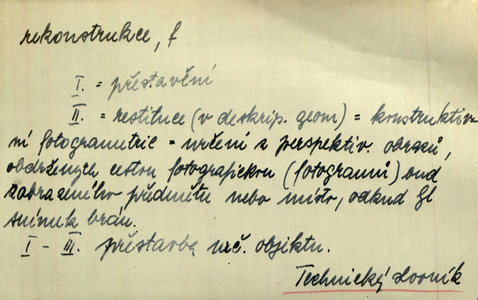 rekonstrukce, f
I. = přestavění
II. = restituce (v deskrip. geom) = konstruktiv-
ní fotogrametrie = určení z perspektiv. obrazů,
obdržených cestou fotografickou (fotogramů) buď
zobrazeného předmětu nebo místo, odkud byl
snímek brán.
I - III. přestavba urč. objektu.
Technický slovník